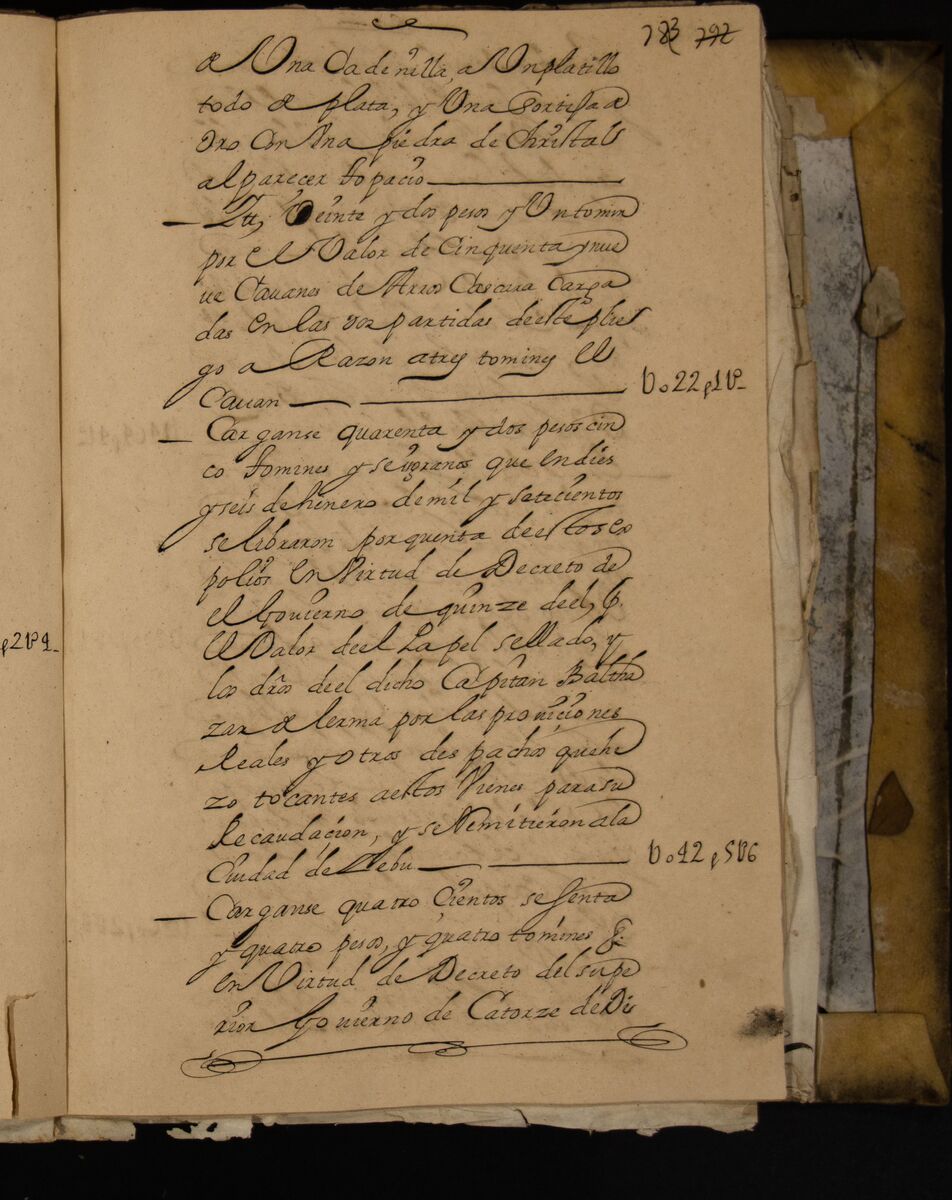 783 792
de Una Cadenilla, a Un platillo
todo de plata, y Una Sortija de
Oro Con Una piedra de Christal
al parecer topacio
Itt, Veinte y dos pesos y Un tomin
por el Valor de Cinquenta y nue
ue Cauanes de Arros Cascara Carga
das en las dos partidas de este plie
go a Razon a tres tomines el
Cauan
U o 22 p 1 t
Carganse quarenta y dos pesos cin
co tomines y seis granos que en dies
y seis de henero de mil y setecientos
se libraron por quenta de estos ex
polios en Virtud de Decreto de
el Gouierno de quinze de el, p.
el Valor de el Papel sellado, y
los dros de el dicho Capitan Baltha
zar de lerma por las prouiciones
Reales y otros despachos que hi
zo tocantes a estos Vienes para su
Recaudacion, y se Remitieron a la
Ciudad de Zebu
U o 42 p 5 t 6
Carganse quatro Cientos sesenta
y quatro pesos, y quatro tomines
en Virtud de Decreto del supe
rior Gouierno de Catorze de Di
p 2 t 9